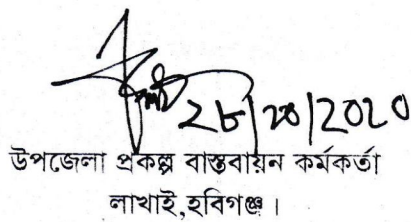 ২৮/১০/2020
উপজেলা প্রকল্প বাস্তবায়ন কর্মকর্তা
লাখাই,হবিগঞ্জ।